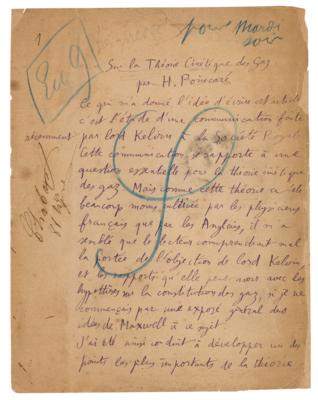 1
pour Mardi
soir
Sur la Théorie Cinétique des Gaz
par H. Poincaré
Ce qui m'a donné l'idée d'écrire cet article
c'est l'étude d'une communication faite
récemment
par lord Kelvin à la Société Royale
Cette communication se rapporte à une
question essentielle pour la théorie cinétique
des gaz. Mais comme cette théorie a été
beaucoup moins cultivée par les physiciens
français que par les Anglais, il m'a
semblé que le lecteur comprendrait mal
la portée de l'objection de lord Kelvin,
et les rapports qu'elle peut avoir avec les
hypothèses sur la constitution des gaz, si je ne
commençais par une exposé général des
idées de Maxwell à ce sujet.
J'ai été ainsi conduit à développer un des
points les plus importants de la théorie